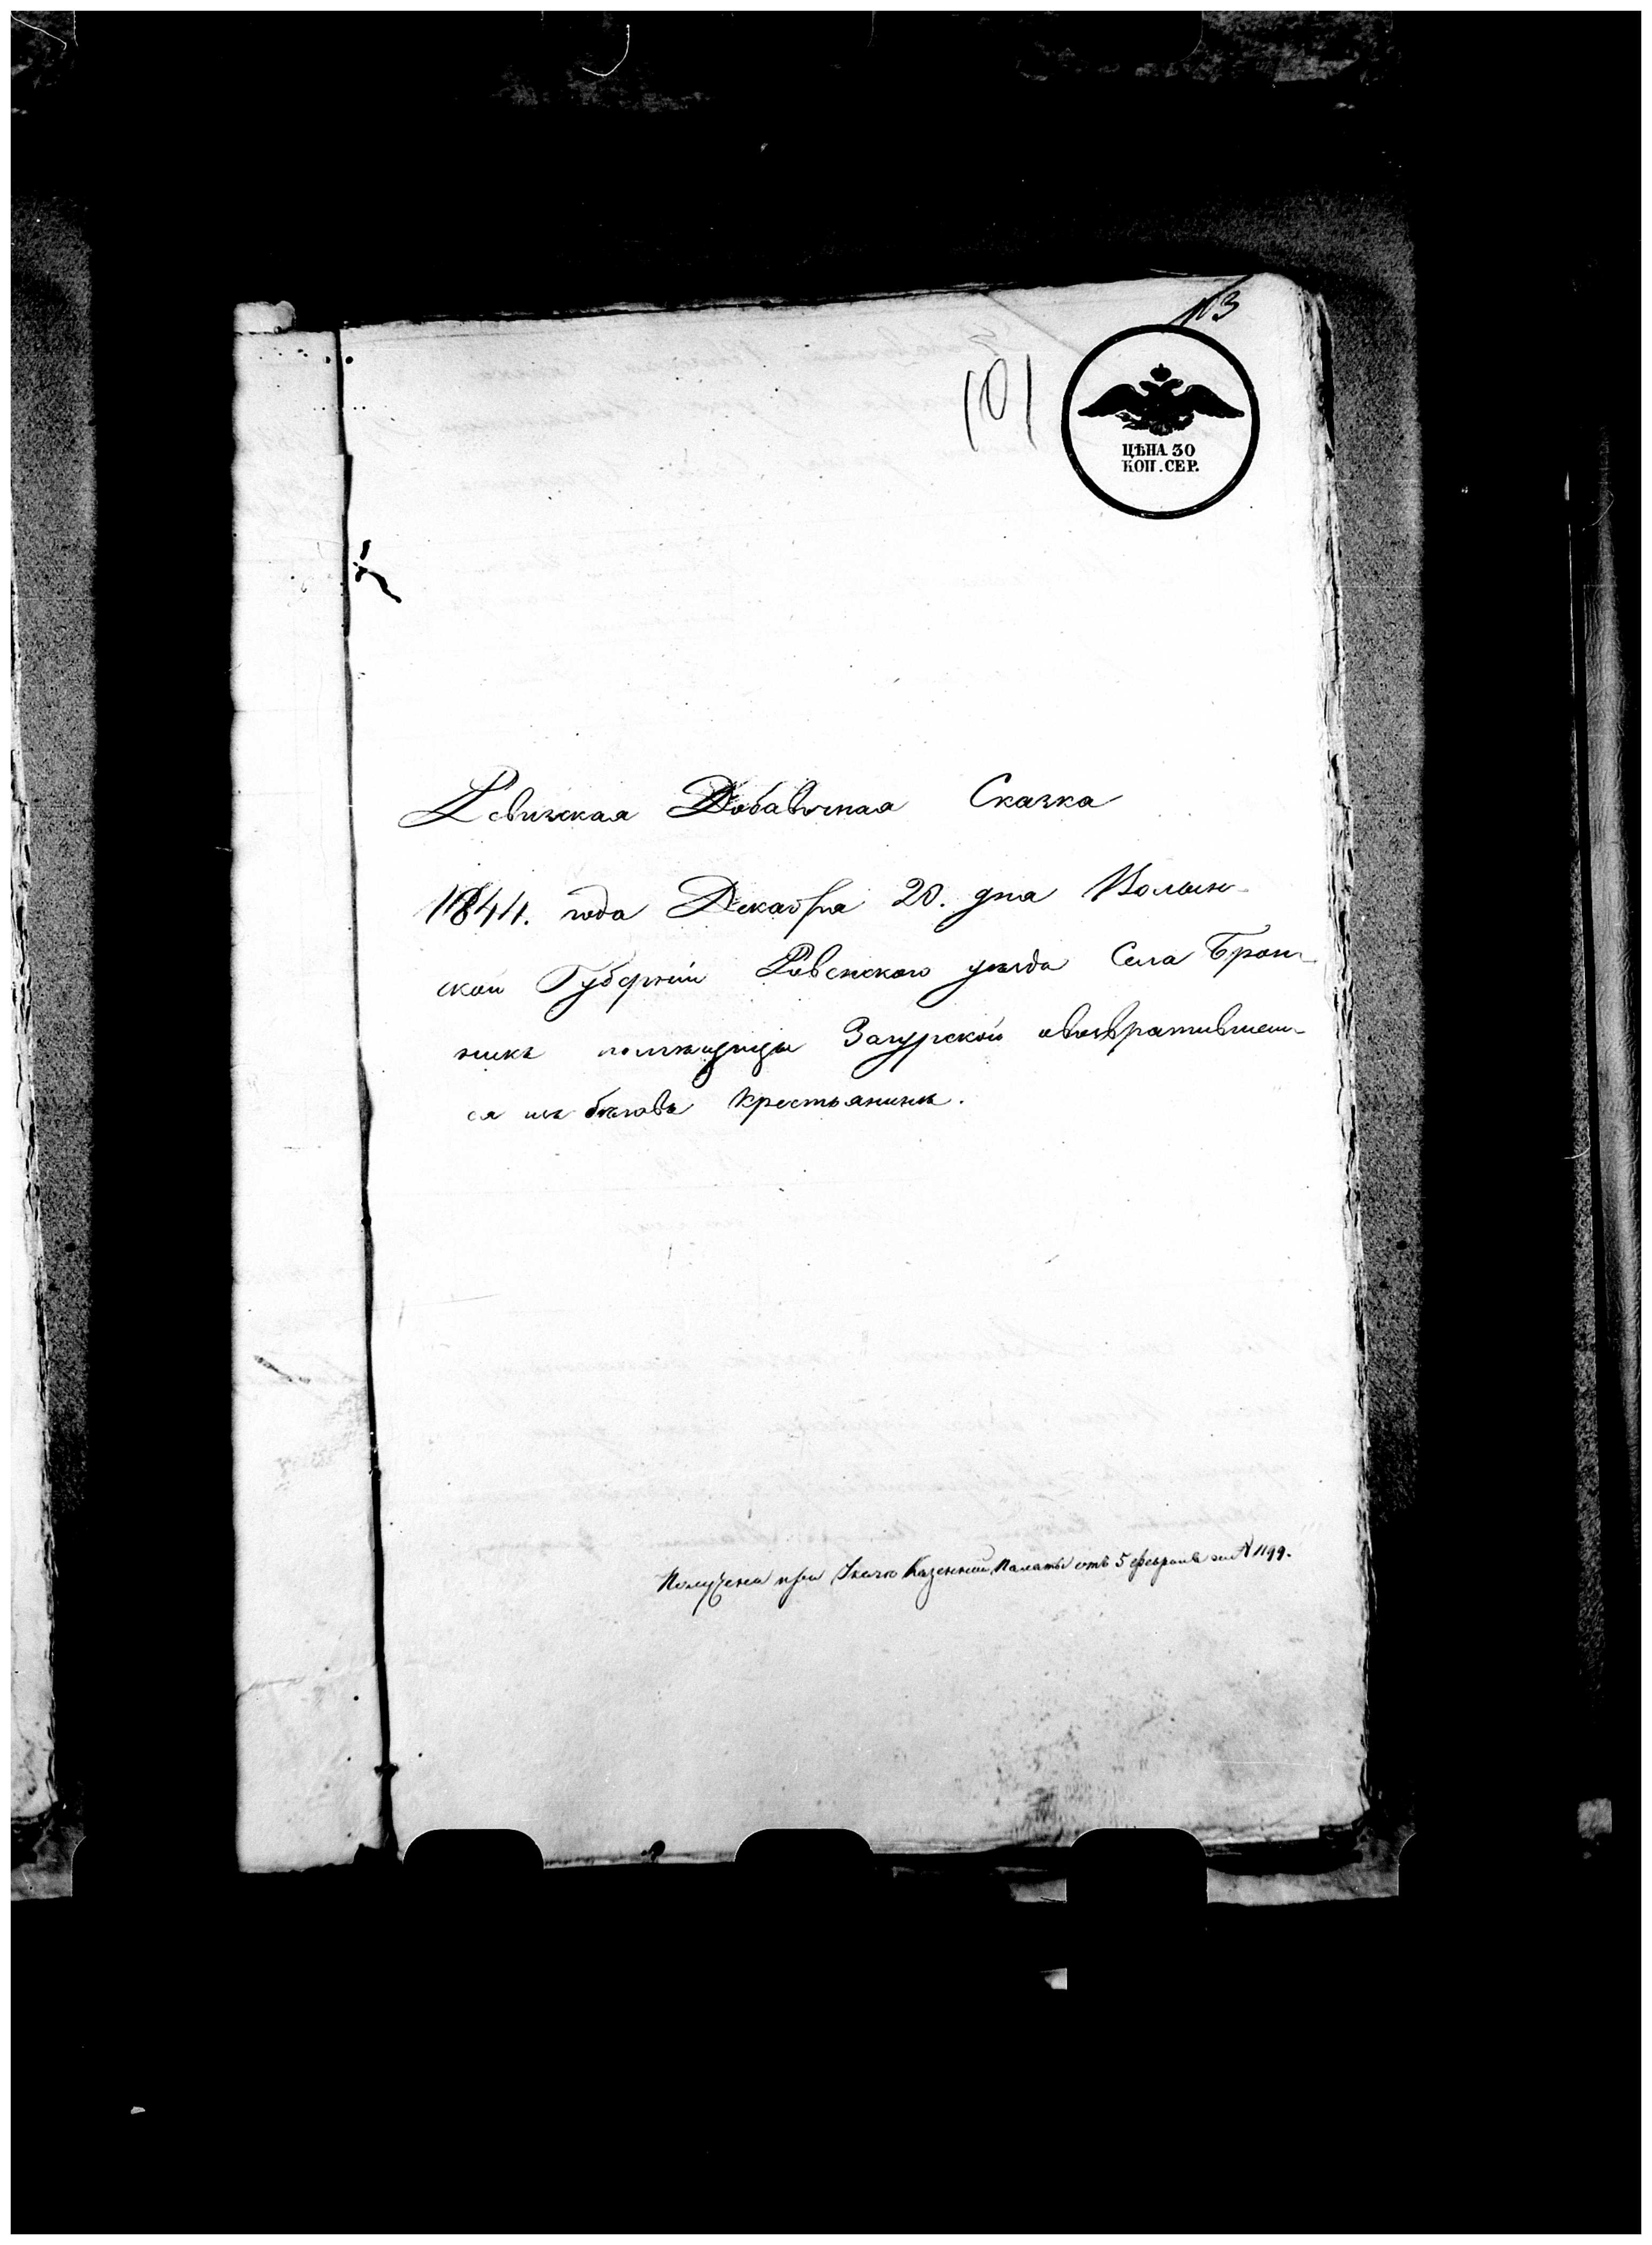 103
101
ЦѢНА 30
КОП. СЕР.
Ревизская Добавочная Сказка
1844. года Декабря 20. дня Волын-
ской Губерніи Ровенского уѣзда Села Брон-
никъ помѣщицы Загурской овозвратившем-
ся изъ бѣговъ крестьянинѣ.
Получена при Указѣ Казенной Палаты отъ 5 февраля за № 1199.